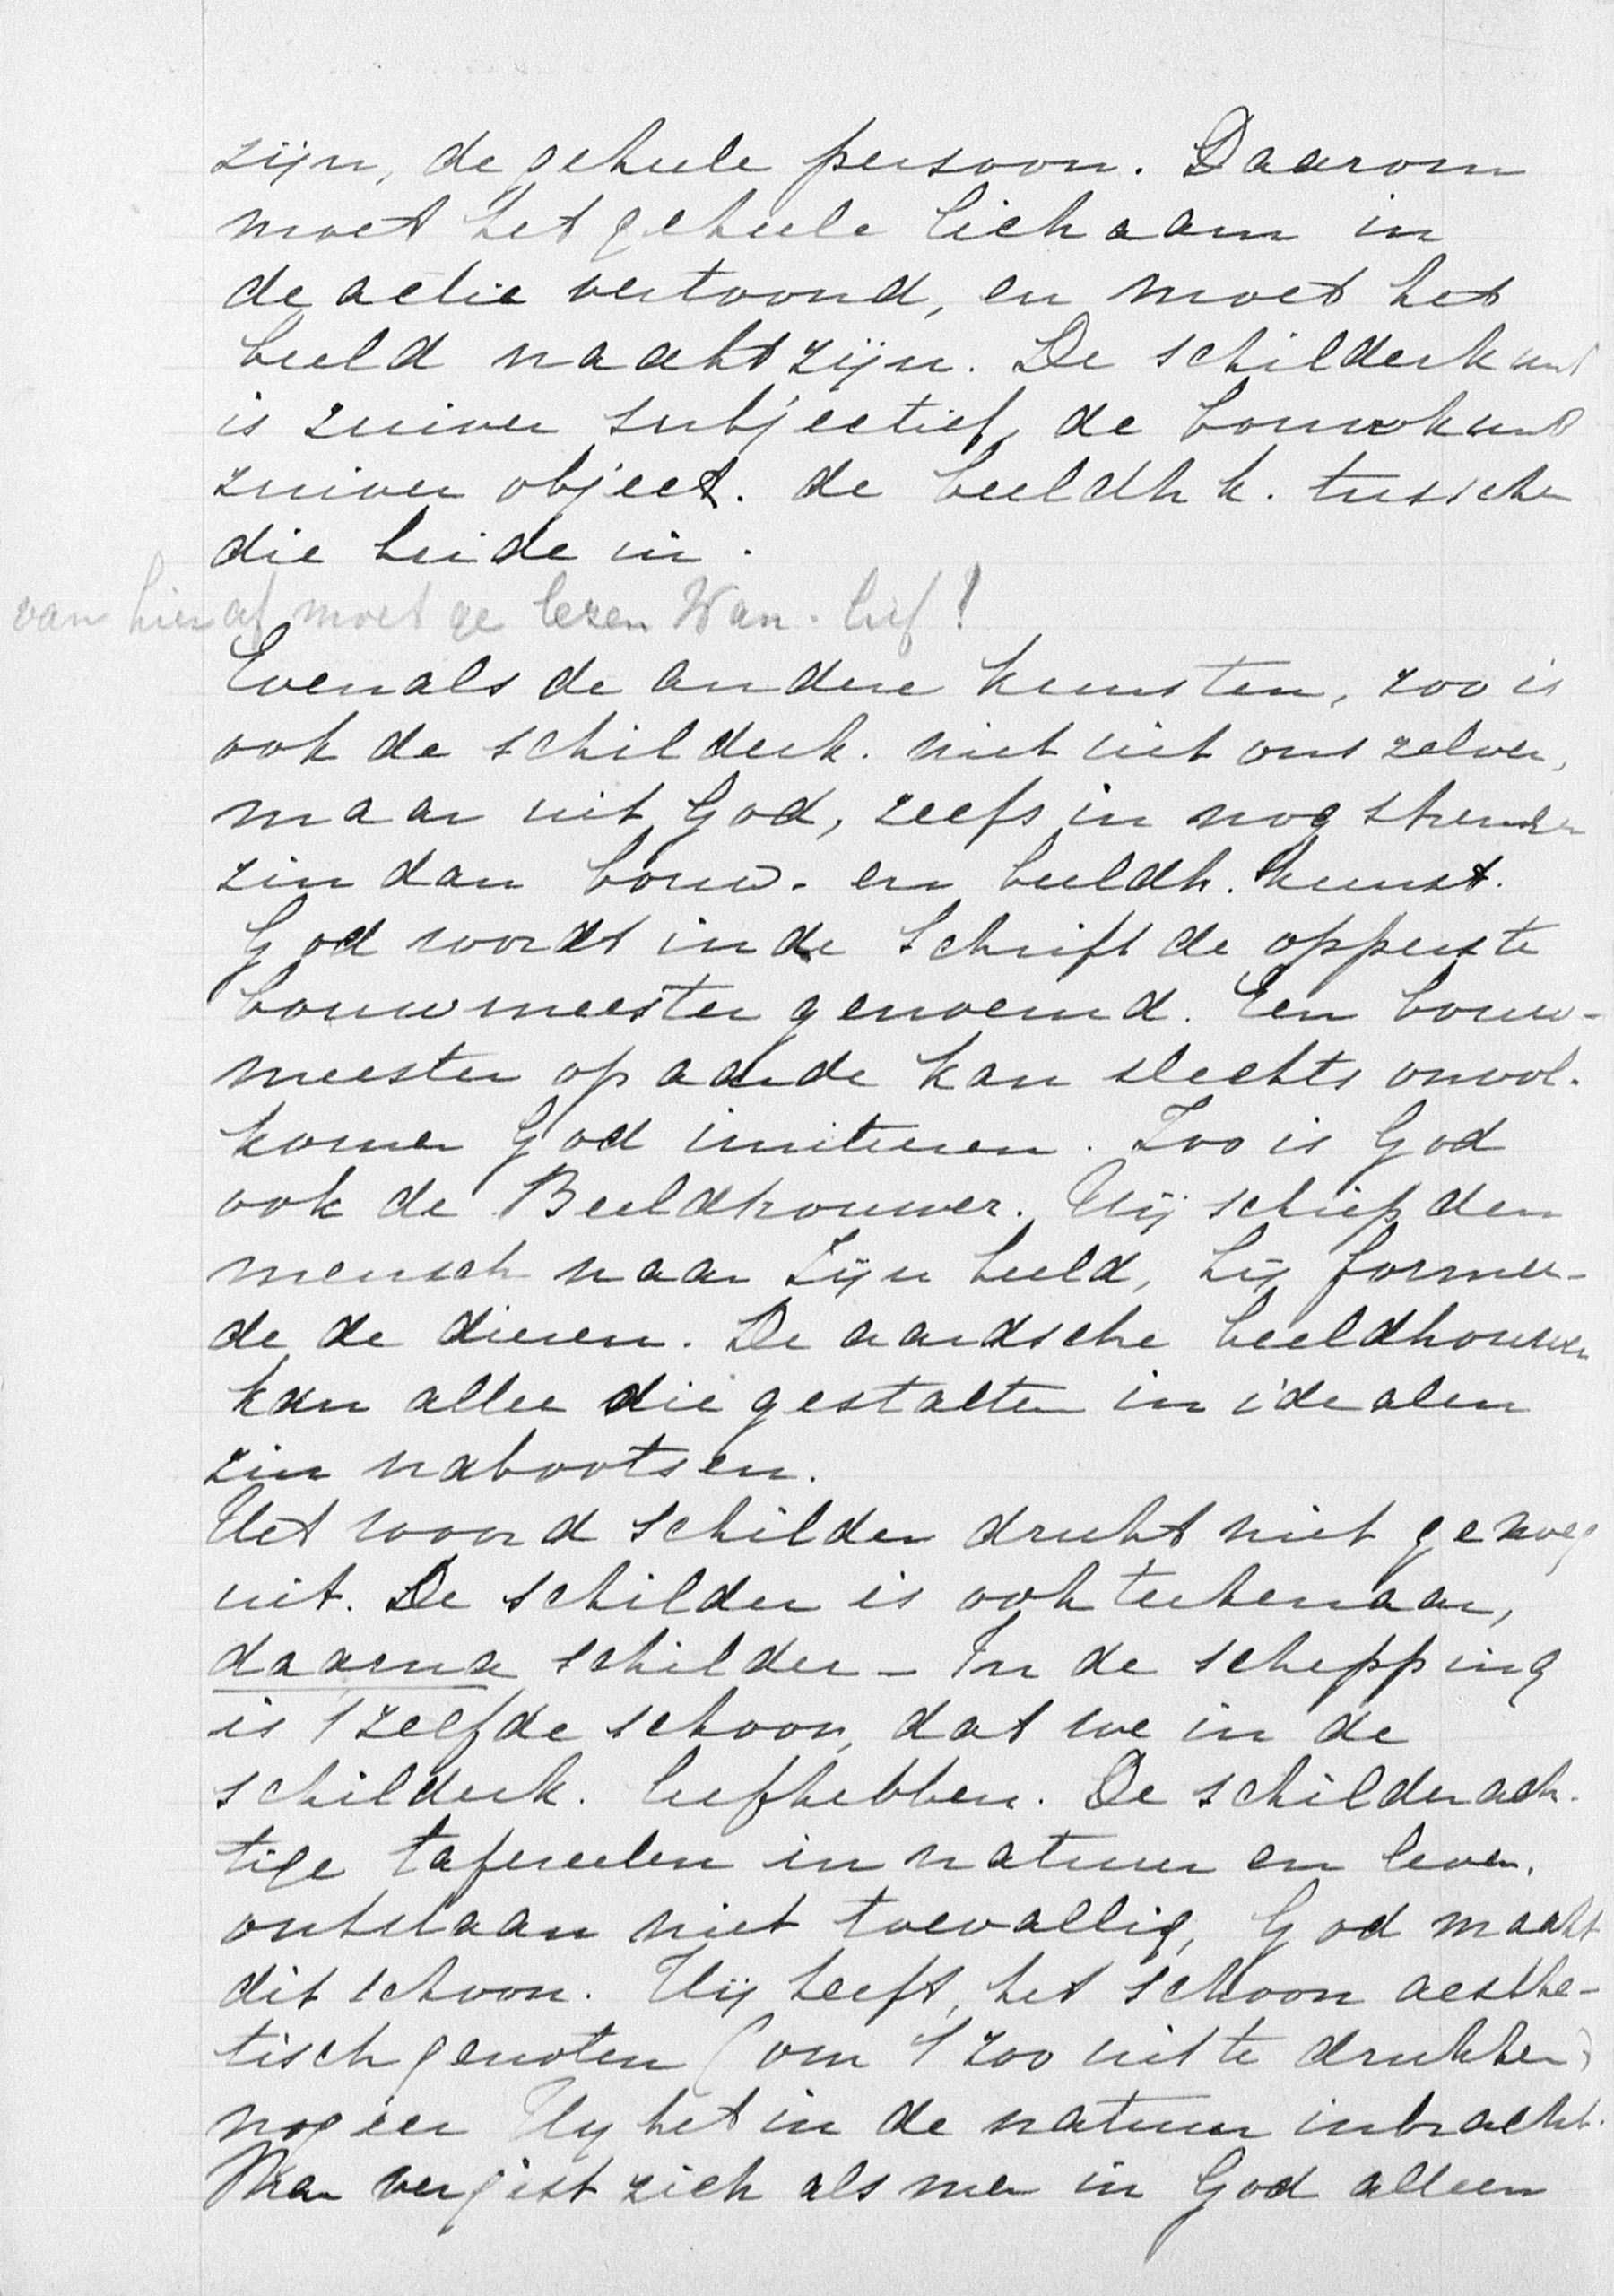 zijn, de geheele persoon. Daarom
moet het geheele lichaam in
de actie vertoond, en moet het
beeld naakt zijn. De schilderkunst
is zuiver subjectief, de bouwkunst
zuiver object. de beeldhk. tusschen
die beide in.
van hier af moet ge lezen Wan. lief!
Evenals de andere kunsten, zoo is
ook de schilderk. niet uit ons zelven,
maar uit God, zelfs in nog strenger
zin dan bouw- en beeldh. kunst.
God wordt in de Schrift de opperste
bouwmeester genoemd. Een bouw-
meester op aarde kan slechts onvol-
komen God imiteeren. Zoo is God
ook de Beeldhouwer. Hij schiep den
mensch naar Zijn beeld, hij formeer-
de de dieren. De aardsche beeldhouwer
kan allee die gestalten in idealen
zin nabootsen.
Het woord schilder drukt niet genoeg
uit. De schilder is ook teekenaar,
daarna schilder - In de schepping
is 't zelfde schoon, dat we in de
schilderk. liefhebben. De schilderach-
tige tafereelen in natuur en leven,
ontstaan niet toevallig, God maakt
dit schoon. Hij heeft, het schoon aesthe-
tisch genoten (om 't zoo uit te drukken)
nog eer Hij het in de natuur inbracht.
Men vergist zich als men in God alleen